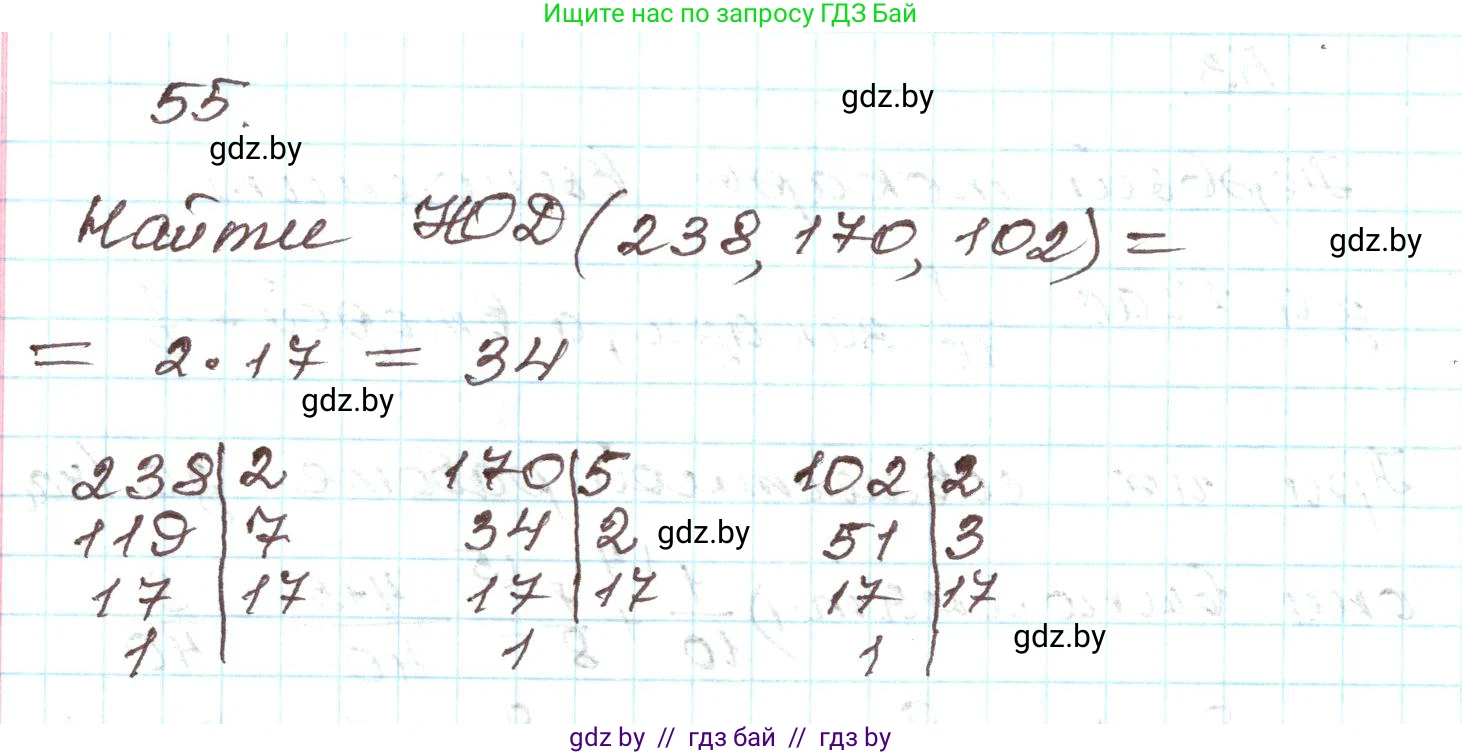 Ищите нас по запросу ГДЗ Бай
55.
gdz.by
gdz.by
Найти НОД(238, 170, 102) =
gdz.by
= 2 · 17 = 34
gdz.by
238 | 2 170 | 5 102 | 2
119 | 7 34 | 2 51 | 3
gdz.by
17 | 17 17 | 17 17 | 17
1 1 1
gdz.by
gdz.by // гдз бай // гдз by